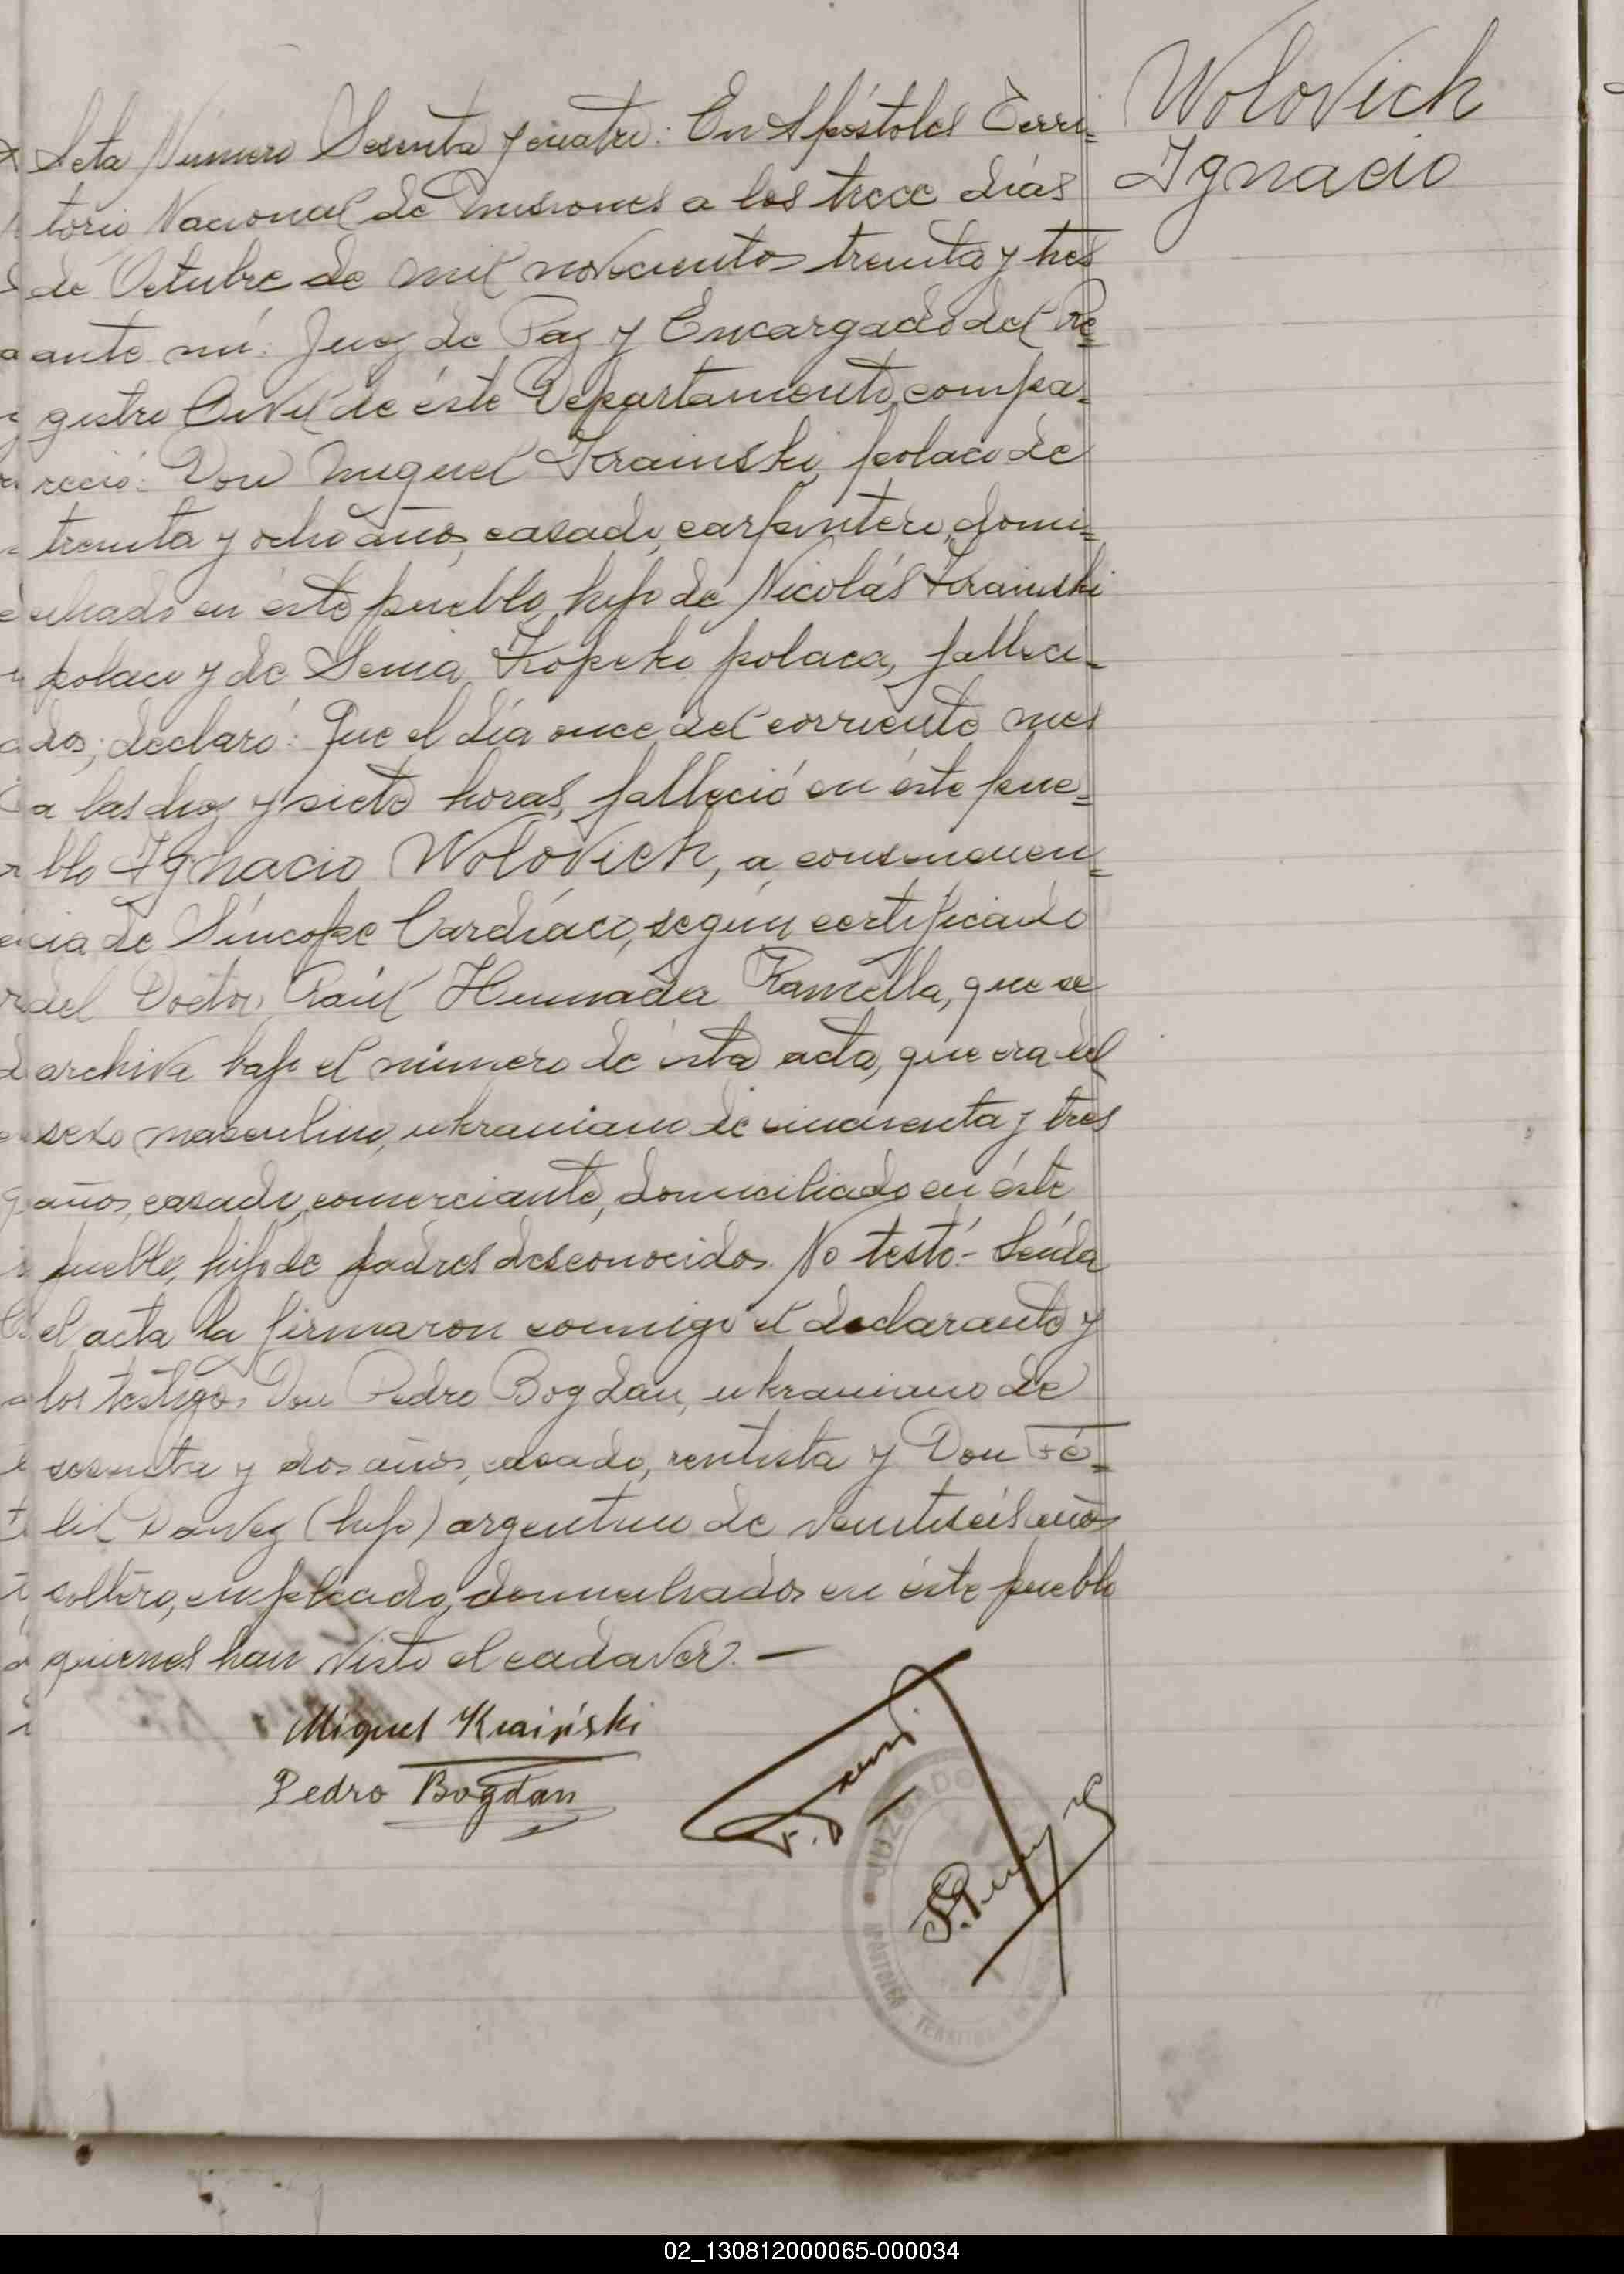 Wolovich
Ignacio
Acta Número Sesenta y cuatro: En Apóstoles Terri=
torio Nacional de Misiones a los trece días
de Octubre de mil novecientos treinta y tres
ante mí: Juez de Paz y Encargado del Re=
gistro Civil de éste Departamento, compa=
reció: Don Miguel Krainski, polaco de
treinta y ocho años, casado, carpintero, domi=
ciliado en éste pueblo, hijo de Nicolás Krainski
polaco y de Senia Kopeko polaca, falleci=
dos; declaró: Que el día once del corriente mes
a las diez y siete horas, falleció en éste pue=
blo Ignacio Wolovich, a consecuen=
cia de Síncope Cardíaco, según certificado
del Doctor Raúl Ramella, que se
archiva bajo el número de ésta acta, que era del
sexo masculino, ukraniano de cincuenta y tres
años, casado, comerciante, domiciliado en éste
pueblo, hijo de padres desconocidos. No testó.- Leída
el acta la firmaron conmigo el declarante y
los testigos Don Pedro Bogdan, ukraniano de
sesenta y dos años, casado, rentista y Don Fé=
lix (hijo) argentino de veintiseis años
soltero, empleado, domiciliados en éste pueblo
quienes han visto el cadaver. —
Miguel Kraiński
Pedro Bogdan
JUZGADO
APOSTOLES - TERRITORIO
02_130812000065-000034